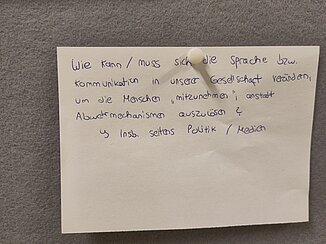 Wie kann / muss sich die Sprache bzw.
Kommunikation in unserer Gesellschaft verändern,
um die Menschen „mitzunehmen“, anstatt
Abwehrmechanismen auszulösen?
↳ Insb. seitens Politik / Medien